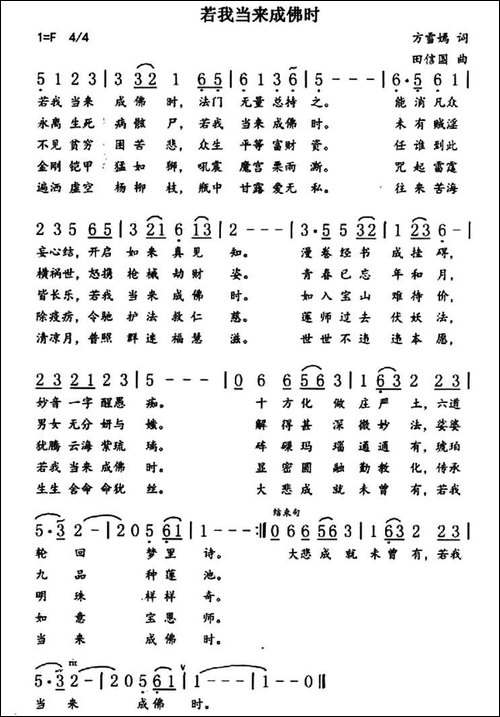 若我当来成佛时
1=F 4/4
方雪嫣 词
田信国 曲
5 1 2 3 | 3 3 2 1 6 5 | 6 1 3 6 | 5 - - - | 6 · 5 6 1 |
若我 当来 成 佛 时，法门 无量 总持 之。 能 消 凡众
永离 生死 病骸 尸，若我 当来 成佛 时。 未 有 贼淫
不见 贫穷 困苦 悲，众生 平等 富财 资。 任 谁 到此
金刚 铠甲 猛如 狮，吼震 魔宫 栗雨 澌。 咒 起 雷霆
遍洒 虚空 杨柳 枝，瓶中 甘露 爱无 私。 往 来 苦海
2 3 5 6 5 | 3 2 1 6 1 3 | 2 - - - | 3 · 5 5 3 2 | 1 2 3 6 - |
妄心结，开启 如 来 真 见 知。 漫 卷 经 书 成 挂 碍，
横祸世，怒携 枪 械 劫 财 姿。 青 春 已 忘 年 和 月，
皆长乐，若我 当 来 成 佛 时。 如 入 宝 山 难 待 价，
除疫疠，令驰 护 法 救 仁 慈。 莲 师 过 去 伏 妖 法，
清凉月，普照 群 迷 福 慧 滋。 世 世 不 违 本 愿，
2 3 2 1 2 3 | 5 - - - | 0 6 6 5 6 3 | 1 6 3 2 3 2 |
妙音 一字 醒愚 痴。 十 方 化 做 庄 严 土，六道
男女 无分 妍与 媸。 解 得 甚 深 微 妙 法，娑婆
犹腾 云海 紫琉 璃。 砗 磲 玛 瑙 通 通 有，琥珀
若我 当来 成佛 时。 显 密 圆 融 勤 教 化，传承
生生 舍命 命犹 丝。 大 悲 成 就 未 曾 有，若我
结束句
5 · 3 2 - | 2 0 5 6 1 | 1 - - - :‖ 0 6 6 5 6 3 | 1 6 3 2 3 2 |
轮 回 梦 里 诗。 大悲 成 就 未 曾 有，若我
九 品 种 莲 池。
明 珠 样 样 奇。
如 意 宝 恩 师。
当 来 成 佛 时。
rit
5 · 3 2 - | 2 0 5 6 1 | 1 - - - | 1 - - 0 ‖
当 来 成 佛 时。